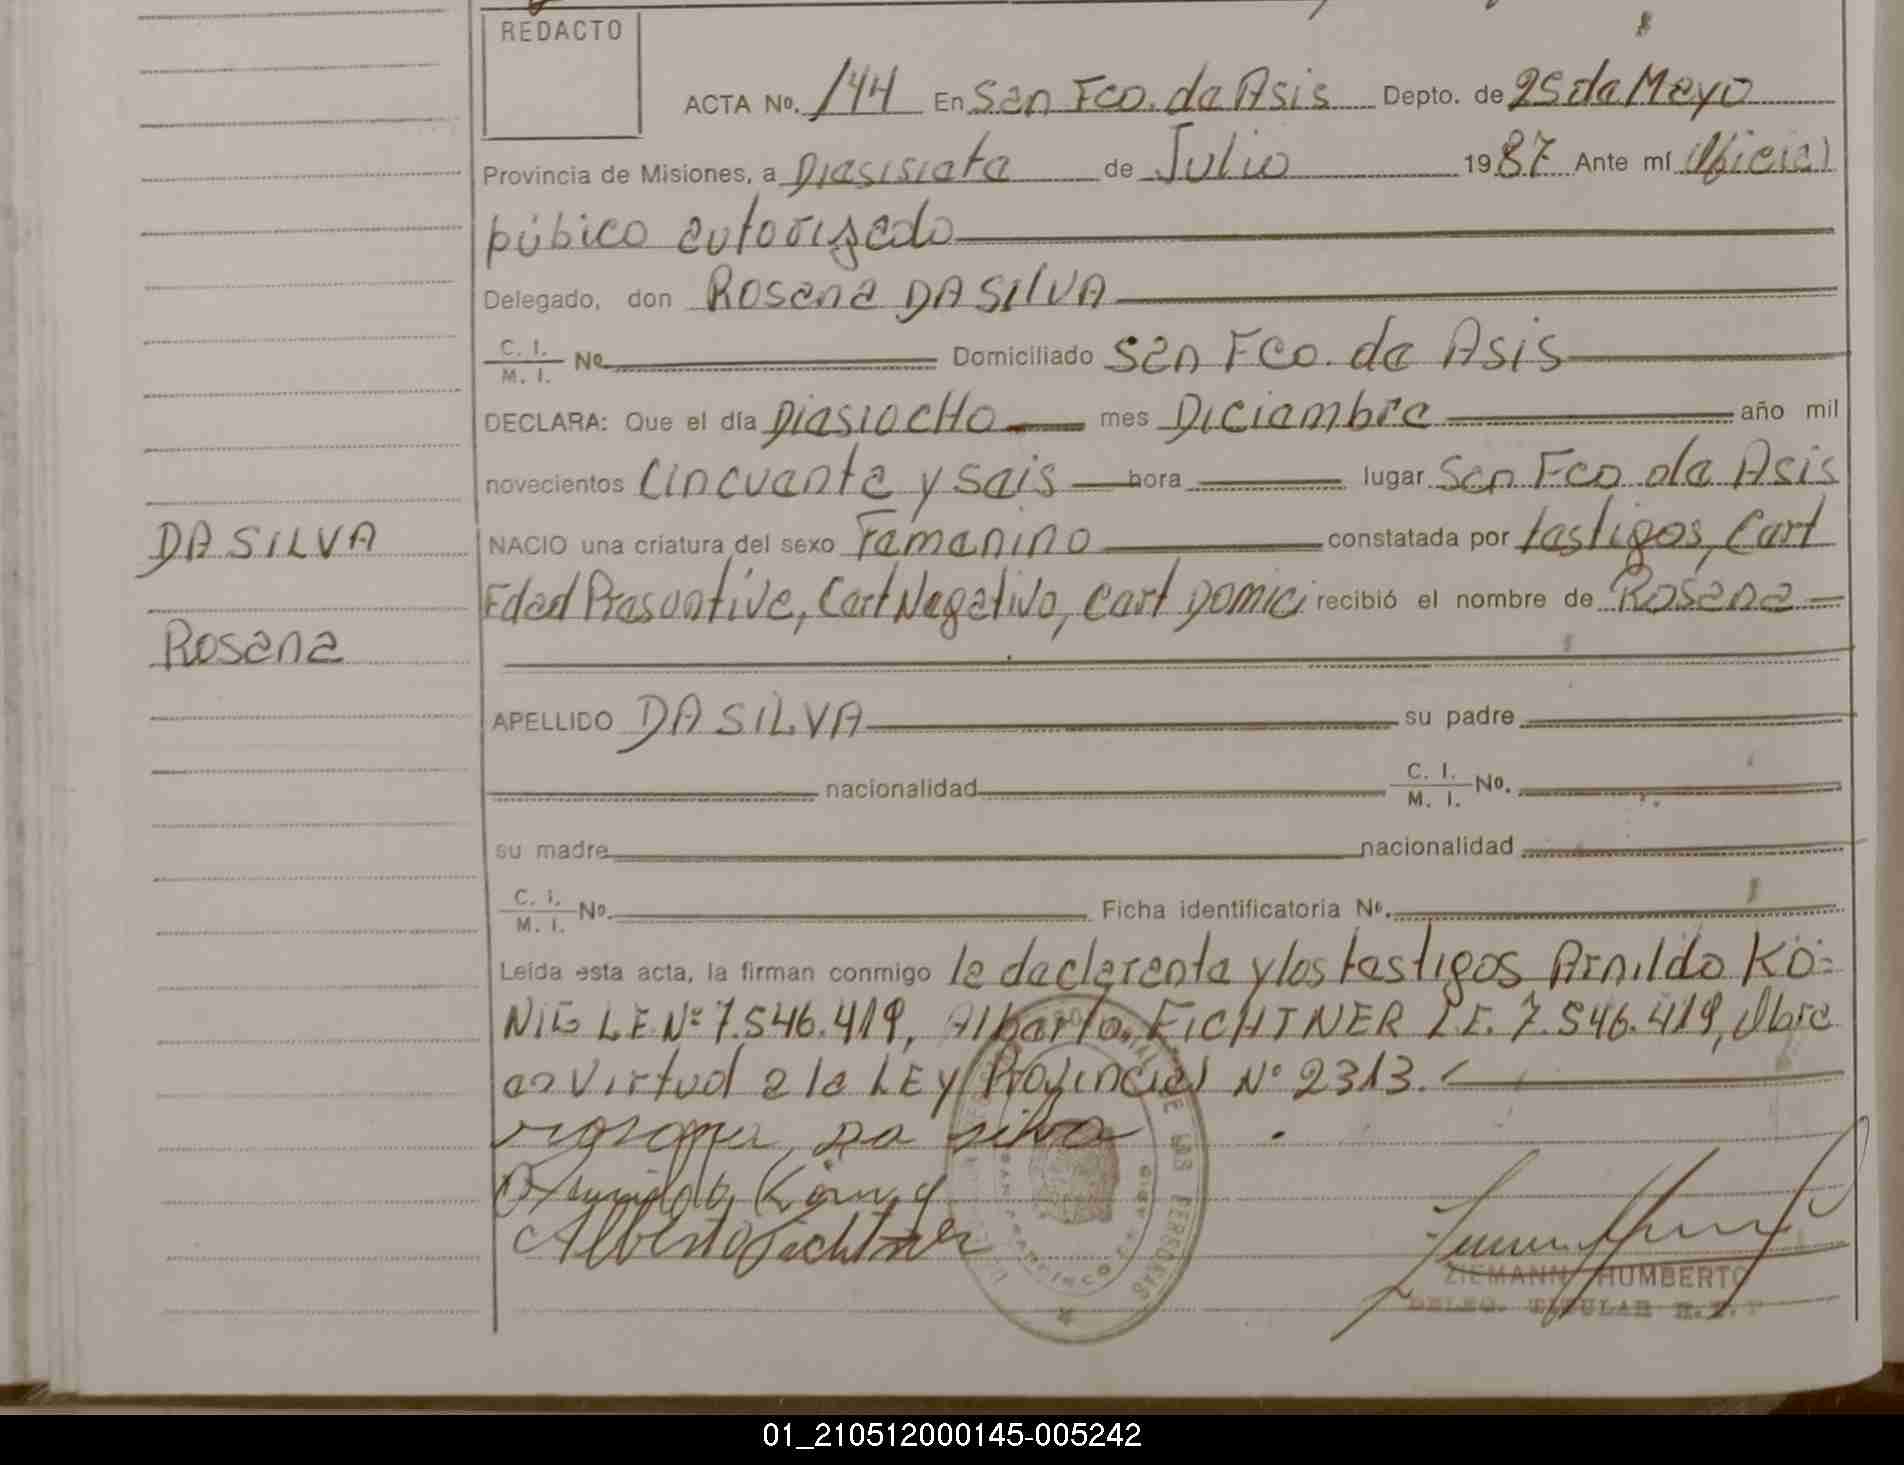 REDACTO
ACTA No. 144 En San Fco. de Asis Depto. de 25 de Mayo
Provincia de Misiones, a Diesisiete de Julio 1987 Ante mí Oficial
púbico autorizado
Delegado, don Rosana DA SILVA
C. I. M. I. No Domiciliado San Fco. de Asis
DECLARA: Que el día DiesiocHo mes Diciembre año mil
novecientos cincuenta y seis hora lugar San Fco de Asis
DA SILVA
NACIO una criatura del sexo Femenino constatada por testigos, Cert
Edad Presuntiva, Cert Negativo, Cert Domici recibió el nombre de Rosana
Rosana
APELLIDO DA SILVA su padre
nacionalidad C. I. M. I. No.
su madre nacionalidad
C. I. M. I. No. Ficha identificatoria No.
Leída esta acta, la firman conmigo la declarente y los testigos Arnildo KÖ=
NIG LE Nº 7.546.419, Alberto FICHTNER L.E. 7.546.419, Obre
en Virtud a la LEy Provincial Nº 2313.
rosana Da silva
König
Alberto Fichtner
ZIEMANN HUMBERTO
DELEG. TITULAR R.P.
DE LAS PERSONAS
01_210512000145-005242